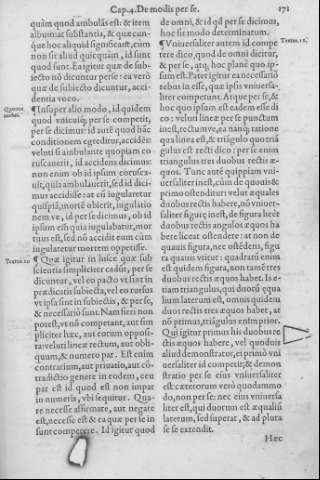 Cap.4. De modis per se. 171
quàm quod ambulás est: & item
albumat substantia, & quæ cun-
que hoc aliquid significant, cùm
non sit aliud quicquàm, id sunt
quod sunt. Ea igitur quæ de subie-
iecto nõ dicuntur per se: ea verò
quæ de subiecto dicuntur, acci-
dentia voco.
Quartus
modus.
¶ Insuper alio modo, id quidem
quod vnicuiq; per se competit,
per se dicimus: id autē quod hãc
conditionem egreditur, accidēs:
veluti si ambulante quopiam co
ruscauerit, id accidens dicimus:
non enim ob id ipsum corusca-
uit, quia ambulauerit, sed id dici-
mus accidisse: at cū iugularetur
quispiã, morte obierit, iugulatio
nem ve, id per se dicimus, ob id
ipsum enim quia iugulabatur, mor
tuus est, sed nõ accidit eum cùm
iugularetur mortem oppetisse.
Textus 10
¶ Quæ igitur in hisce quæ sub
scientia simpliciter cadūt, per se
dicuntur, vel eo pacto vt sint in
prædicatis subiecta, vel eo rursus
vt ipsa sint in subiectis, & per se,
& necessariò sunt. Nam fieri non
potest, vt nõ competant, aut sim
pliciter hæc, aut eorum opposi-
ta: veluti lineæ rectum, aut obli-
quum, & numero par. Est enim
contrarium, aut priuatio, aut cõ-
tradictio genere in eodem, ceu
par est id quod est non impar
in numeris, vbi sequitur. Qua-
re necesse est affirmare, aut negare
est, necesse est & ea quæ per se in
sunt competere. Id igitur quod
de omni, & id qd per se dicimus,
hoc sit modo determinatum.
Textus 11.
¶ Vniuersaliter autem id compe
tere dico, quod de omni dicitur,
& per se, atq; hoc planè quo ip-
sum est. Patet igitur ea necessariò
rebus in esse, quæ ipsis vniuersa-
liter competunt. Atque per se, &
hoc quo ipsum est eadem esse di
co: veluti lineæ per se punctum
inest, rectumve, ea nanq; ratione
qua linea est, & triãgulo quo triã
gulus est recti duo: per se enim
triangulus tres duobus rectis æ-
quos. Tunc autē quippiam vni-
uersaliter inest, cùm de quouis &
primo ostenditur: velut æquales
duobus rectis habere, nõ vniuer-
saliter figuræ inest, de figura licèt
duobus rectis angulos æquos ha
bere liceat ostendere: at non de
quauis figura, nec ostēdens, figu
ra quauis vtitur: quadratū enim
est quidem figura, non tamē tres
duobus rectis æquos habet. Is e-
tiam triangulus, qui duorū æqua
lium laterum est, omnis quidem
duos rectis tres æquos habet, at
nõ primus, triãgulus enim prior.
Qui igitur primus his duobus re
ctis æquos habere, vel quoduis
aliud demonstratur, ei primò vni
uersaliter id competit, & demon
stratio per se eius vniuersaliter
est: cæterorum verò quodammo
do, non per se: nec eius vniuersa
liter est, qui duorum est æqualiū
laterum, sed superat, & ad plura
se se extendit.
Hęc